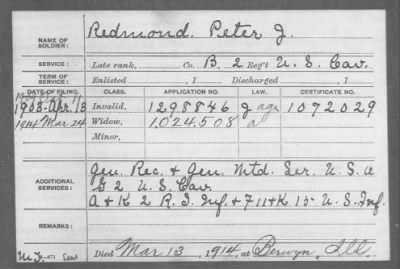 NAME OF SOLDIER: Redmond, Peter J.
SERVICE: Late rank, Co. B, 2 Reg't U. S. Cav.
TERM OF SERVICE: Enlisted , 1 Discharged , 1
DATE OF FILING. CLASS. APPLICATION NO. LAW. CERTIFICATE NO.
1903-Apr. 13 Invalid, 1298846 J age 1072029
1914. Mar 24 Widow, 1.024.508 a
Minor,
ADDITIONAL SERVICES: Gen. Rec. & Gen. Mtd. Ser. U. S. A
G 2 U. S. Cav.
A & K 2 R. I. Inf. & F 11 & K 15 U. S. Inf.
REMARKS:
Died Mar 13, 1914, at Berwyn, Ill.